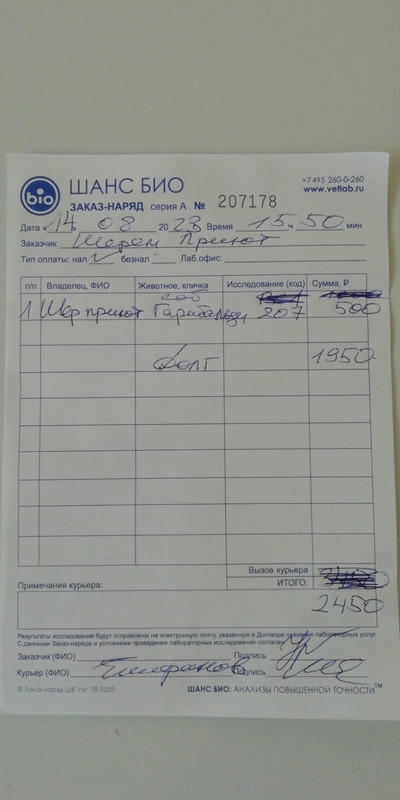 bio ШАНС БИО +7 495 260-0-260
www.vetlab.ru
ЗАКАЗ-НАРЯД серия А № 207178
Дата «14 08 2023 Время 15 ч 50 мин
Заказчик Шерем Приют
Тип оплаты: нал V безнал Лаб.офис:
п/п Владелец, ФИО Животное, кличка Исследование (код) Сумма, ₽
соб
1 Шер приют Гарибальди 207 500
Долг 1950
Вызов курьера
ИТОГО
Примечания курьера:
2450
Результаты исследований будут отправлены на электронную почту, указанную в Договоре оказания лабораторных услуг.
С данными Заказ-наряда и условиями проведения лабораторных исследований согласен
Заказчик (ФИО) Подпись
Курьер (ФИО) Подпись
© Заказ-наряд ШБ Ver. 08-2020 ШАНС БИО: АНАЛИЗЫ ПОВЫШЕННОЙ ТОЧНОСТИ™